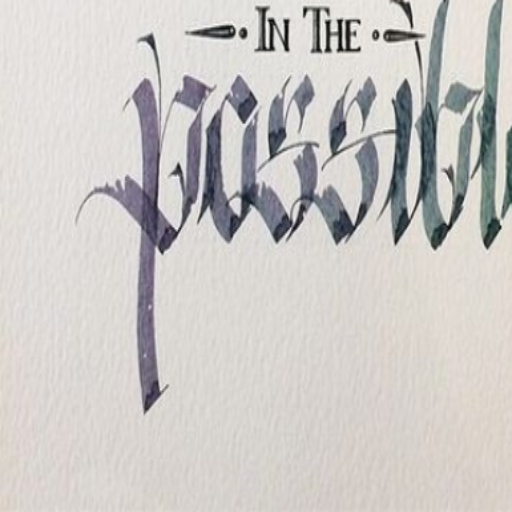 IN THE
possibl